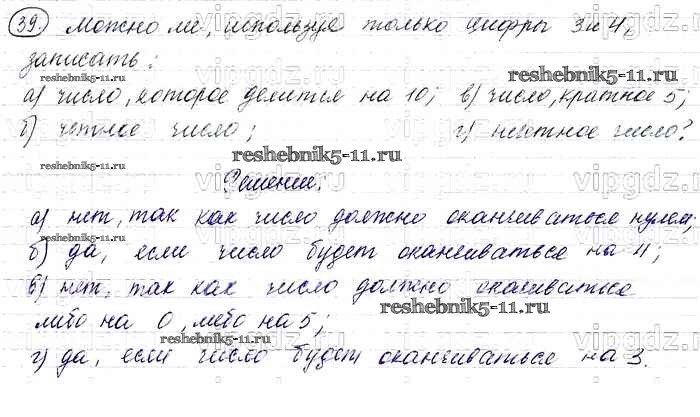 39. Можно ли, используя только цифры 3 и 4,
записать:
а) число, которое делится на 10; в) число, кратное 5;
б) четное число; г) нечетное число?
Решение:
а) нет, так как число должно оканчиваться нулем;
б) да, если число будет оканчиваться на 4;
в) нет, так как число должно оканчиваться
либо на 0, либо на 5;
г) да, если число будет оканчиваться на 3.
reshebnik5-11.ru
reshebnik5-11.ru
reshebnik5-11.ru
reshebnik5-11.ru
reshebnik5-11.ru
reshebnik5-11.ru
reshebnik5-11.ru
vipgdz.ru